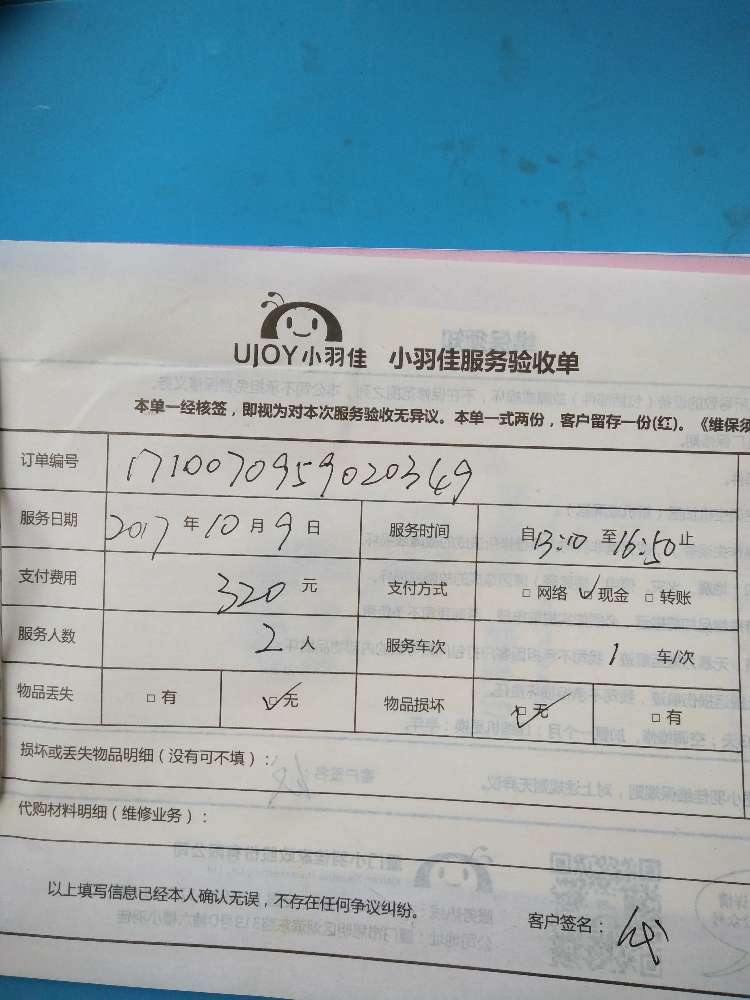 UJOY小羽佳 小羽佳服务验收单
本单一经核签，即视为对本次服务验收无异议。本单一式两份，客户留存一份(红)。《维保须
订单编号 1710070959020349
服务日期 2017 年 10 月 9 日 服务时间 自 13:10 至 16:50 止
支付费用 320 元 支付方式 □ 网络 ☑ 现金 □ 转账
服务人数 2 人 服务车次 1 车/次
物品丢失 □ 有 ☑ 无 物品损坏 ☑ 无 □ 有
损坏或丢失物品明细（没有可不填）：
代购材料明细（维修业务）：
以上填写信息已经本人确认无误，不存在任何争议纠纷。
客户签名：